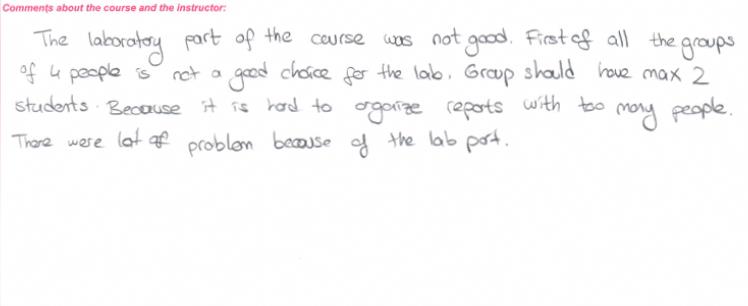 Comments about the course and the instructor:
The laboratory part of the course was not good. First of all the groups
of 4 people is not a good choice for the lab. Group should have max 2
students. Because it is hard to organize reports with too many people.
There were lot of problem because of the lab part.